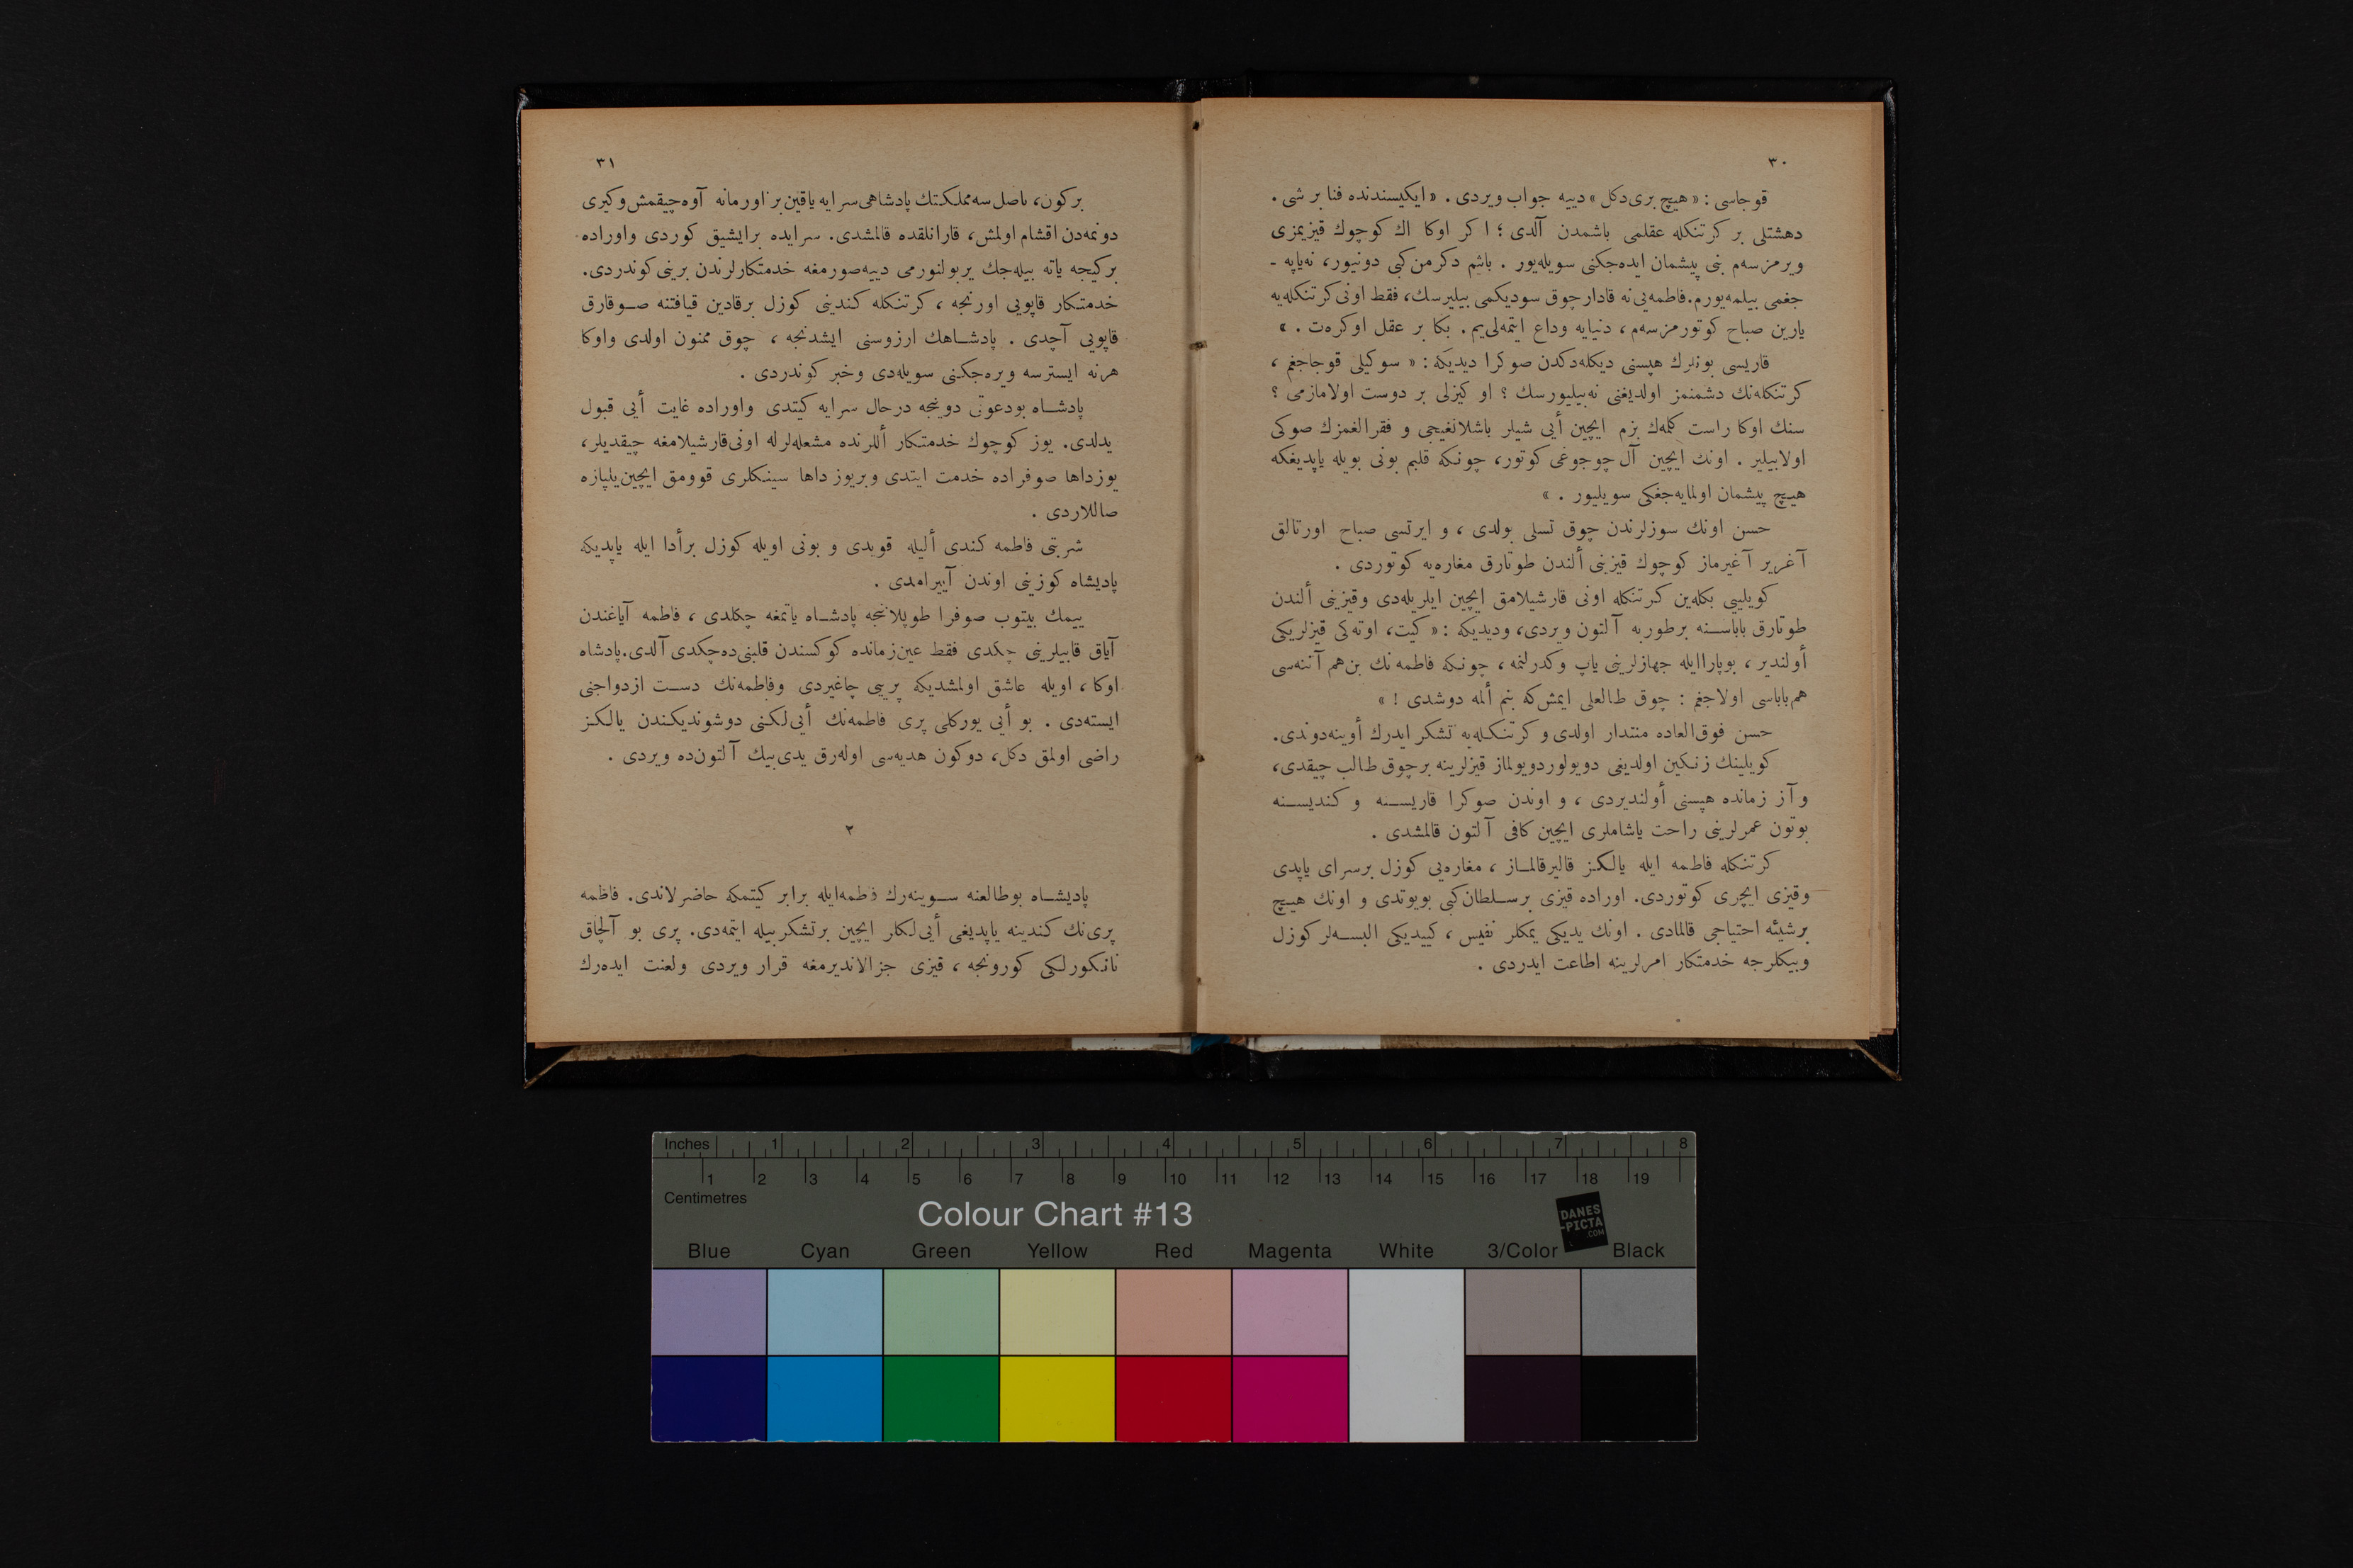 ٣٠
قوجاسی : « هیچ بری دكل » دییه جواب ویردی . « ایكیسندنده فنا بر شی .
دهشتلی بر كرتنكله عقلمی باشمدن آلدی ؛ اكر اوكا اك كوچوك قیزیمزی
ویرمزسەم بنی پیشمان ایدەجكنی سویلەیور . باشم دكرمن كبی دونیور، نەیاپه ـ
جغمی بیلمەیورم. فاطمەیی نه قادار چوق سودیكمی بیلیرسك، فقط اونی كرتنكلەیه
یارین صباح كوتورمزسەم، دنیایه وداع ایتمەلی‌یم. بكا بر عقل اوكرەت . »
قاریسی بونلرك هپسنی دیكلەدكدن صوكرا دیدیكه : « سوكیلی قوجاجغم ،
كرتنكلەنك دشمنمز اولدیغنی نەبیلیورسك ؟ او كیزلی بر دوست اولامازمی ؟
سنك اوكا راست كلمەك بزم ایچین أیی شیلر باشلانغیجی و فقرالغمزك صوكی
اولابیلیر . اونك ایچین آل چوجوغی كوتور، چونكه قلبم بونی بویله یاپدیغكه
هیچ پیشمان اولمایەجغكی سویلیور . »
حسن اونك سوزلرندن چوق تسلی بولدی ، و ایرتسی صباح اورتالق
آغریر آغیرماز كوچوك قیزینی ألندن طوتارق مغارەیه كوتوردی .
كویلییی بكلەین كرتنكله اونی قارشیلامق ایچین ایلریلەدی وقیزینی ألندن
طوتارق باباسنه برطوربه آلتون ویردی، ودیدیكه : « كیت، اوتەكی قیزلریكی
أولندیر ، بوپاراایله جهازلرینی یاپ وكدرلنمه ، چونكه فاطمەنك بن هم آننەسی
هم باباسی اولاجغم : چوق طالعلی ایمش كه بنم ألمه دوشدی ! »
حسن فوق‌العاده منتدار اولدی و كرتنكلەیه تشكر ایدرك أوینه دوندی.
كویلینك زنكین اولدیغی دویولور دویولماز قیزلرینه برچوق طالب چیقدی،
و آز زمانده هپسنی أولندیردی ، و اوندن صوكرا قاریسنه و كندیسنه
بوتون عمرلرینی راحت یاشاملری ایچین كافی آلتون قالمشدی .
كرتنكله فاطمه ایله یالكز قالیرقالماز ، مغارەیی كوزل برسرای یاپدی
وقیزی ایچری كوتوردی. اوراده قیزی برسلطان كبی بویوتدی و اونك هیچ
برشیئه احتیاجی قالمادی . اونك یدیكی یمكلر نفیس ، كییدیكی البسەلر كوزل
وبیكلرجه خدمتكار امرلرینه اطاعت ایدردی .
٣١
بركون، ناصل‌سه مملكتك پادشاهی سرایه یاقین بر اورمانه آوه چیقمش وكیری
دونمەدن اقشام اولمش، قارانلقده قالمشدی. سرایده برایشیق كوردی واوراده
بركیجه یاته بیلەجك یربولنورمی دییه صورمغه خدمتكارلرندن برینی كوندردی.
خدمتكار قاپویی اورنجه ، كرتنكله كندینی كوزل برقادین قیافتنه صوقارق
قاپویی آچدی . پادشاهك ارزوسنی ایشدنجه ، چوق ممنون اولدی واوكا
هرنه ایسترسه ویرەجكنی سویلەدی وخبر كوندردی .
پادشاه بودعوتی دوینجه درحال سرایه كیتدی واوراده غایت أیی قبول
یدلدی. یوز كوچوك خدمتكار أللرنده مشعلەلرله اونی قارشیلامغه چیقدیلر،
یوزداها صوفراده خدمت ایتدی وبریوز داها سینكلری قوومق ایچین یلپازه
صاللاردی .
شربتی فاطمه كندی ألیله قویدی و بونی اویله كوزل برأدا ایله یاپدیكه
پادیشاه كوزینی اوندن آییرامدی .
ییمك بیتوب صوفرا طوپلانجه پادشاه یاتمغه چكلدی ، فاطمه آیاغندن
آیاق قابیلرینی چكدی فقط عین زمانده كوكسندن قلبنی‌ده چكدی آلدی. پادشاه
اوكا ، اویله عاشق اولمشدیكه پرییی چاغیردی وفاطمەنك دست ازدواجنی
ایستەدی . بو أیی یوركلی پری فاطمەنك أیی‌لكنی دوشوندیكندن یالكز
راضی اولمق دكل، دوكون هدیەسی اولەرق یدی بیك آلتون‌ده ویردی .
٢
پادیشاه بوطالعنه سوینەرك فاطمه ایله برابر كیتمكه حاضرلاندی. فاطمه
پری‌نك كندینه یاپدیغی أیی‌لكلر ایچین برتشكربیله ایتمەدی. پری بو آلچاق
نانكورلكی كورونجه ، قیزی جزالاندیرمغه قرار ویردی ولعنت ایدەرك
Inches 1 2 3 4 5 6 7 8
1 2 3 4 5 6 7 8 9 10 11 12 13 14 15 16 17 18 19
Centimetres
Colour Chart #13
DANES
-PICTA
.COM
Blue Cyan Green Yellow Red Magenta White 3/Color Black